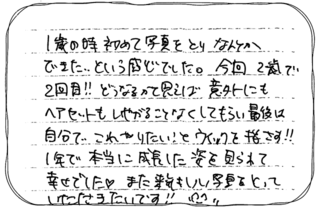 1歳の時初めて写真をとり なんとか
できた…という感じでした。今回 2歳で
2回目!! どうなるかと思えば 意外にも
ヘアセットもしやがることなくしてもらい最後は
自分で、これやりたい!と ウィッグを指さす!!
1年で本当に成長した姿を見られて
幸せでした♡ また 親もいい写真をとって
いただきたいです!!